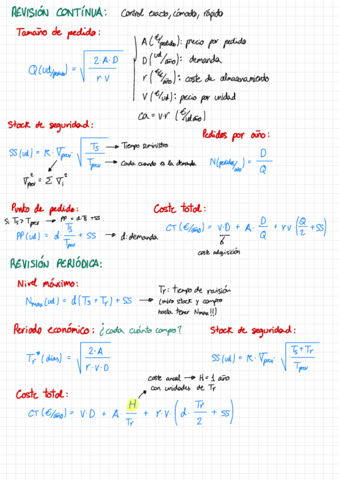 REVISIÓN CONTÍNUA: Control exacto, cómodo, rápido
Tamaño de pedido:
Q (ud/pedido) = √(2·A·D / r·v)
A (€/pedido): precio por pedido
D (ud/año): demanda
r (€/€/año): coste de almacenamiento
V (€/ud): precio por unidad
Ca = v·r (€/ud año)
Stock de seguridad:
SS (ud) = K · ∇prev · √(Ts / Tprev)
Ts → Tiempo suministro
Tprev → Cada cuando es la demanda
∇²prev = Σ ∇i²
Pedidos por año:
N (pedidos/año) = D / Q
Punto de pedido:
Si Ts > Tprev → PP = d·Ts + SS
PP (ud) = d · Ts / Tprev + SS
d: demanda
Coste total:
CT (€/año) = V·D + A · D/Q + r·v (Q/2 + SS)
coste adquisición
REVISIÓN PERIÓDICA:
Nivel máximo:
Nmax (ud) = d (Ts + Tr) + SS
Tr: tiempo de revisión
(miro stock y compro
hasta tener Nmax!!)
Periodo económico: ¿cada cuánto compro?
Tr* (días) = √(2·A / r·v·D)
Stock de seguridad:
SS (ud) = K · ∇prev · √(Ts + Tr / Tprev)
Coste total:
coste anual → H = 1 año
con unidades de Tr
CT (€/año) = V·D + A · H/Tr + r·v · (d · Tr/2 + SS)